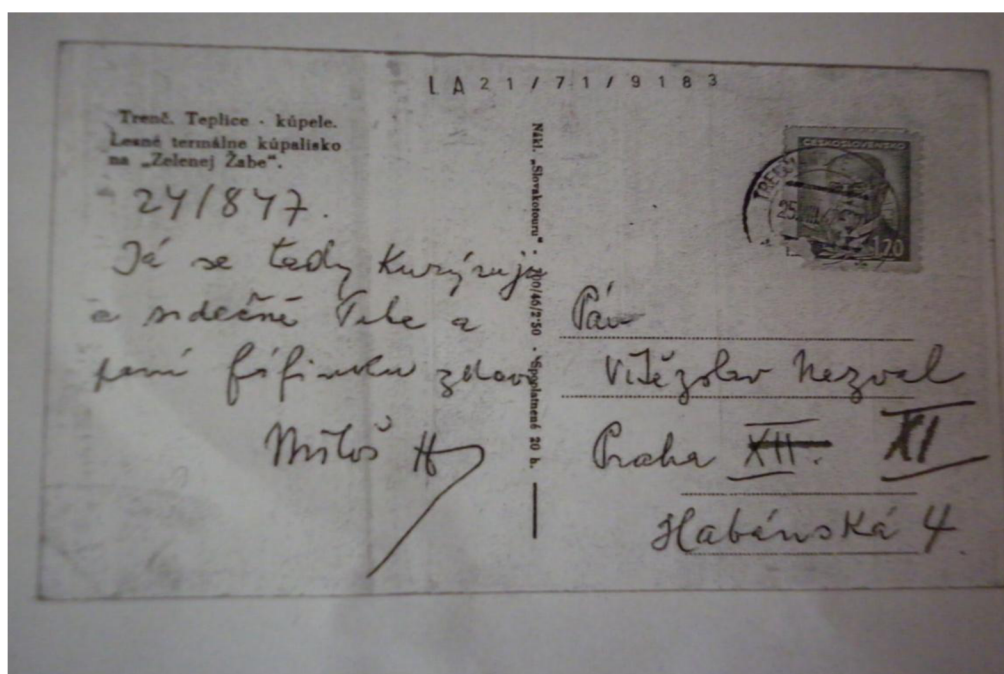 LA 21/71/9183
Trenč. Teplice - kúpele.
Lesné termálne kúpalisko
na „Zelenej Žabe“.
24/847.
Já se tady kurýruju
a srdečně Tebe a
paní fáfinku zdraví
Miloš H
Nákl. „Slovakotouru“ - 200/46/2·50 - Spoplatnené 20 h.
ČESKOSLOVENSKO
1.20
TRENČ
25.
Pán
Vítězslav Nezval
Praha XII. XI
Habánská 4.